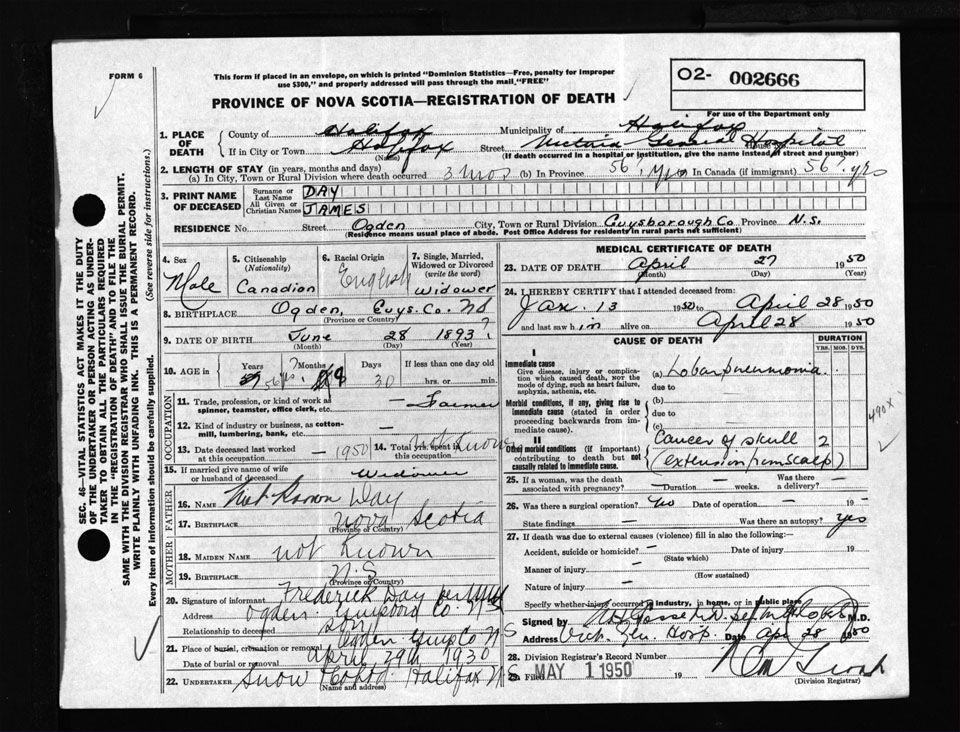 FORM 6
This form if placed in an envelope, on which is printed "Dominion Statistics—Free, penalty for improper
use $300," and properly addressed will pass through the mail "FREE"
O2- 002666
For use of the Department only
PROVINCE OF NOVA SCOTIA—REGISTRATION OF DEATH
1. PLACE OF DEATH
County of Halifax Municipality of Halifax
If in City or Town Halifax Street Victoria General Hospital
(Name) (If death occurred in a hospital or institution, give the name instead of street and number)
2. LENGTH OF STAY (in years, months and days)
(a) In City, Town or Rural Division where death occurred 3 mos (b) In Province 56 yrs In Canada (if immigrant) 56 yrs
3. PRINT NAME OF DECEASED
Surname or Last Name DAY
All Given or Christian Names JAMES
RESIDENCE No. Street Ogden City, Town or Rural Division Guysborough Co Province N.S.
(Residence means usual place of abode. Post Office Address for residents in rural parts not sufficient)
4. Sex Male
5. Citizenship (Nationality) Canadian
6. Racial Origin English
7. Single, Married, Widowed or Divorced (write the word) Widower
8. BIRTHPLACE Ogden, Guys. Co. NS
(Province or Country)
9. DATE OF BIRTH June 28 1893?
(Month) (Day) (Year)
10. AGE in Years 56 yrs. Months Days 30 If less than one day old
hrs. or min.
OCCUPATION
11. Trade, profession, or kind of work as spinner, teamster, office clerk, etc. — Farmer
12. Kind of industry or business, as cotton-mill, lumbering, bank, etc. —
13. Date deceased last worked at this occupation — 1950
14. Total yrs. spent in this occupation Not Known
15. If married give name of wife or husband of deceased Widower
FATHER
16. NAME Not Known Day
17. BIRTHPLACE Nova Scotia
(Province or Country)
MOTHER
18. MAIDEN NAME not Known
19. BIRTHPLACE N.S
(Province or Country)
20. Signature of informant Frederick Day per
Address Ogden Co. NS
Relationship to deceased son
21. Place of burial, cremation or removal Ogden NS
Date of burial or removal April 29th 1950
22. UNDERTAKER Snow Halifax NS
(Name and address)
MEDICAL CERTIFICATE OF DEATH
23. DATE OF DEATH April 27 1950
(Month) (Day) (Year)
24. I HEREBY CERTIFY that I attended deceased from:
Jan. 13 1950 to April 28 1950
and last saw him alive on April 28 1950
CAUSE OF DEATH
DURATION
YRS. MOS. DYS.
I
Immediate cause
Give disease, injury or complication which caused death, not the mode of dying, such as heart failure, asphyxia, asthenia, etc.
(a) Lobar pneumonia
due to
Morbid conditions, if any, giving rise to immediate cause (stated in order proceeding backwards from immediate cause).
(b)
due to
(c)
490X
II
Other morbid conditions (if important) contributing to death but not causally related to immediate cause.
Cancer of skull 2
(extension from scalp)
25. If a woman, was the death associated with pregnancy? — Duration — weeks. Was there a delivery? —
26. Was there a surgical operation? No Date of operation — 19 —
State findings — Was there an autopsy? yes
27. If death was due to external causes (violence) fill in also the following:
Accident, suicide or homicide? — Date of injury 19
(State which)
Manner of injury —
(How sustained)
Nature of injury —
Specify whether injury occurred in industry, in home, or in public place
Signed by M.D.
Address Vict. Gen. Hosp. Date Apr 28 1950
28. Division Registrar's Record Number
29. Filed MAY 1 1950 19
(Division Registrar)
SEC. 46—VITAL STATISTICS ACT MAKES IT THE DUTY
OF THE UNDERTAKER OR PERSON ACTING AS UNDER-
TAKER TO OBTAIN ALL THE PARTICULARS REQUIRED
IN THE "REGISTRATION OF DEATH" AND TO FILE THE
SAME WITH THE DIVISION REGISTRAR WHO SHALL ISSUE THE BURIAL PERMIT.
WRITE PLAINLY WITH UNFADING INK. THIS IS A PERMANENT RECORD.
Every item of information should be carefully supplied. (See reverse side for instructions.)